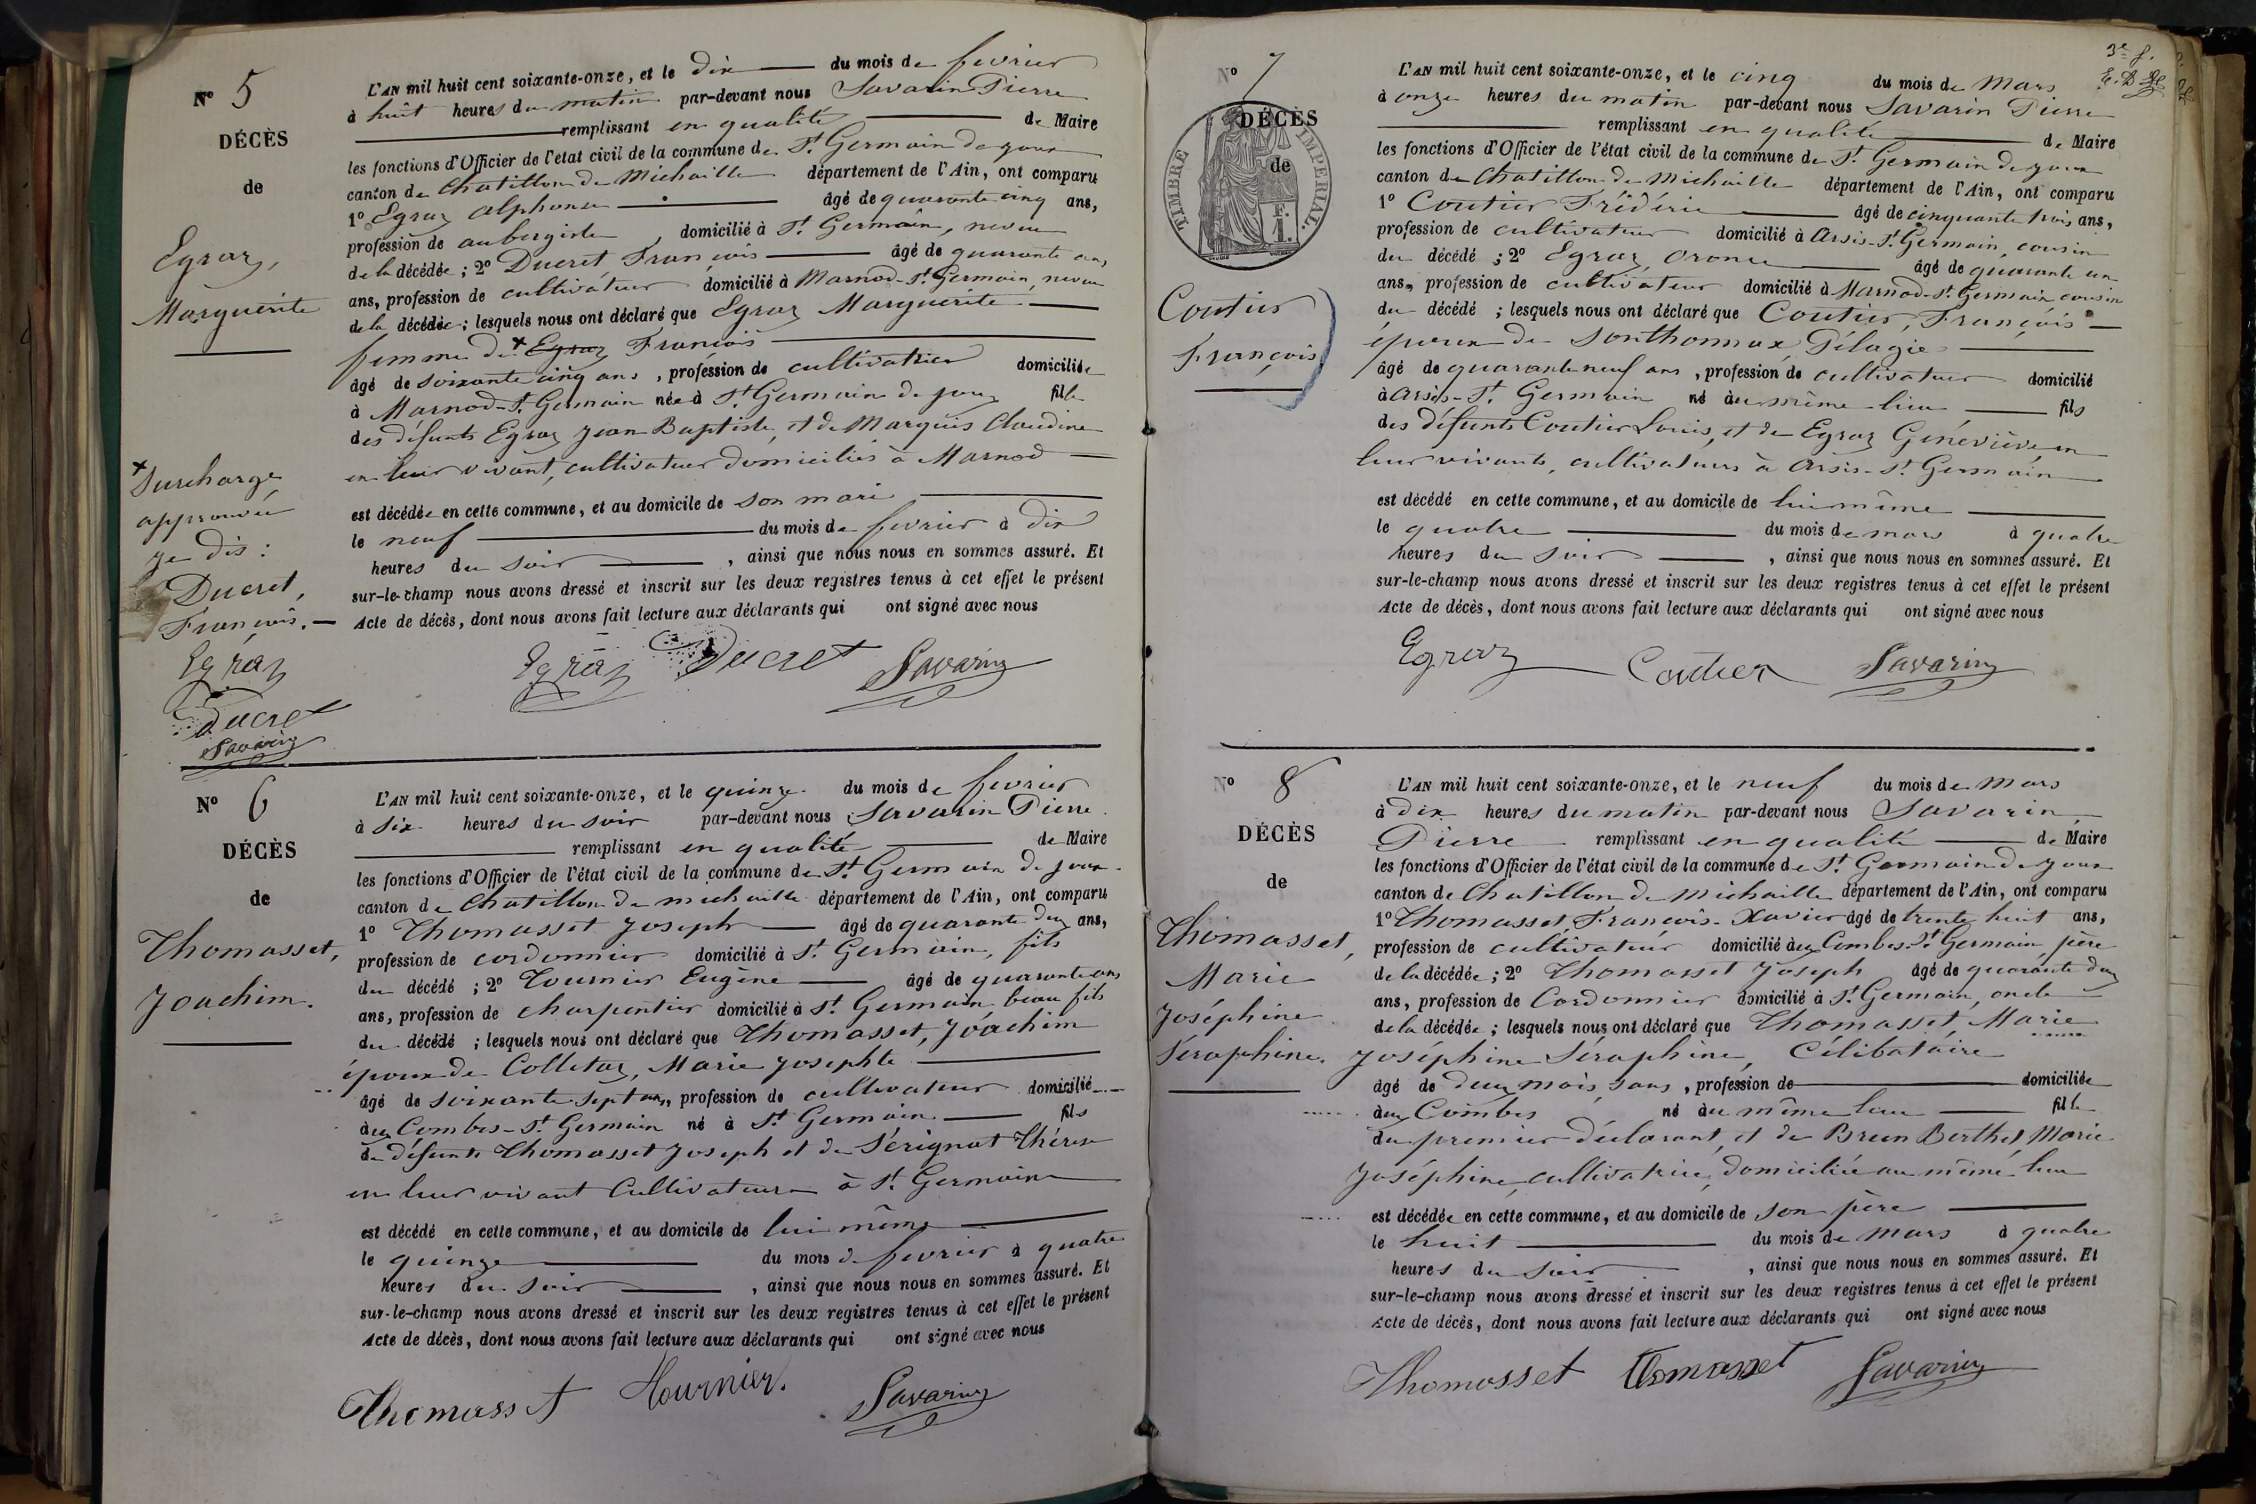 N° 5
DÉCÈS
de
Egraz,
Marguerite
L'AN mil huit cent soixante-onze, et le dix du mois de fevrier
à huit heures du matin par-devant nous Savarin Pierre
remplissant en qualité de Maire
les fonctions d'Officier de l'état civil de la commune de St Germain de joux
canton de Chatillon de Michaille département de l'Ain, ont comparu
1° Egraz Alphonse âgé de quarante cinq ans,
profession de aubergiste, domicilié à St Germain, neveu
de la décédée; 2° Ducret François âgé de quarante
ans, profession de cultivateur domicilié à Marnod-St Germain, neveu
de la décédée; lesquels nous ont déclaré que Egraz Marguerite
femme de × Egraz François
âgé de soixante cinq ans, profession de cultivatrice domiciliée
à Marnod-St Germain née à St Germain de joux fille
des défunts Egraz Jean Baptiste, et de Marquis Claudine
en leur vivant, cultivateur domiciliés à Marnod
est décédée en cette commune, et au domicile de son mari
le neuf du mois de fevrier à dix
heures du soir, ainsi que nous nous en sommes assuré. Et
sur-le-champ nous avons dressé et inscrit sur les deux registres tenus à cet effet le présent
Acte de décès, dont nous avons fait lecture aux déclarants qui ont signé avec nous
× Surcharge
approuvée
je dis :
Ducret,
François.
Egraz
Ducret
Savarin
Egraz Ducret Savarin
N° 6
DÉCÈS
de
Thomasset,
Joachim.
L'AN mil huit cent soixante-onze, et le quinze du mois de fevrier
à six heures du soir par-devant nous Savarin Pierre
remplissant en qualité de Maire
les fonctions d'Officier de l'état civil de la commune de St Germain de joux
canton de Chatillon de michaille département de l'Ain, ont comparu
1° Thomasset Joseph âgé de quarante deux ans,
profession de cordonnier domicilié à St Germain, fils
du décédé; 2° Tournier Eugène âgé de quarante ans
ans, profession de charpentier domicilié à St Germain beau fils
du décédé; lesquels nous ont déclaré que Thomasset, Joachim
époux de Colletaz, Marie Josephte
âgé de soixante sept ans, profession de cultivateur domicilié
aux Combes-St Germain né à St Germain fils
de défunts Thomasset Joseph et de Sérignat Thérèse
en leur vivant Cultivateurs à St Germain
est décédé en cette commune, et au domicile de lui même
le quinze du mois de fevrier à quatre
heures du soir, ainsi que nous nous en sommes assuré. Et
sur-le-champ nous avons dressé et inscrit sur les deux registres tenus à cet effet le présent
Acte de décès, dont nous avons fait lecture aux déclarants qui ont signé avec nous
Thomasset Tournier. Savarin
3e f.
N° 7
DÉCÈS
de
TIMBRE IMPERIAL.
F.
1.
Coutier
François
L'AN mil huit cent soixante-onze, et le cinq du mois de Mars
à onze heures du matin par-devant nous Savarin Pierre
remplissant en qualité de Maire
les fonctions d'Officier de l'état civil de la commune de St Germain de joux
canton de Chatillon de Michaille département de l'Ain, ont comparu
1° Coutier Frédéric âgé de cinquante trois ans,
profession de cultivateur domicilié à Arsis-St Germain, cousin
du décédé; 2° Egraz, Oronce âgé de quarante un
ans, profession de cultivateur domicilié à Marnod-St Germain cousin
du décédé; lesquels nous ont déclaré que Coutier, François
époux de Sonthonnax Pélagie
âgé de quarante neuf ans, profession de cultivateur domicilié
à Arsis-St Germain né au même lieu fils
des défunts Coutier Louis, et de Egraz Geneviève en
leur vivants, cultivateurs à Arsis-St Germain
est décédé en cette commune, et au domicile de lui même
le quatre du mois de mars à quatre
heures du soir, ainsi que nous nous en sommes assuré. Et
sur-le-champ nous avons dressé et inscrit sur les deux registres tenus à cet effet le présent
Acte de décès, dont nous avons fait lecture aux déclarants qui ont signé avec nous
Egraz Coutier Savarin
N° 8
DÉCÈS
de
Thomasset,
Marie
Joséphine
Séraphine.
L'AN mil huit cent soixante-onze, et le neuf du mois de Mars
à dix heures du matin par-devant nous Savarin
Pierre remplissant en qualité de Maire
les fonctions d'Officier de l'état civil de la commune de St Germain de joux
canton de Chatillon de Michaille département de l'Ain, ont comparu
1° Thomasset, François-Xavier âgé de trente huit ans,
profession de cultivateur domicilié aux Combes-St Germain, père
de la décédée; 2° Thomasset Joseph âgé de quarante deux
ans, profession de Cordonnier domicilié à St Germain, oncle
de la décédée; lesquels nous ont déclaré que Thomasset, Marie
Joséphine Séraphine, Célibataire
âgé de deux mois, sans, profession de domiciliée
aux Combes né au même lieu fille
du premier déclarant, et de Brun Berthet, Marie
Joséphine, cultivatrice, domiciliée au même lieu
est décédée en cette commune, et au domicile de son père
le huit du mois de mars à quatre
heures du soir, ainsi que nous nous en sommes assuré. Et
sur-le-champ nous avons dressé et inscrit sur les deux registres tenus à cet effet le présent
Acte de décès, dont nous avons fait lecture aux déclarants qui ont signé avec nous
Thomasset Thomasset Savarin